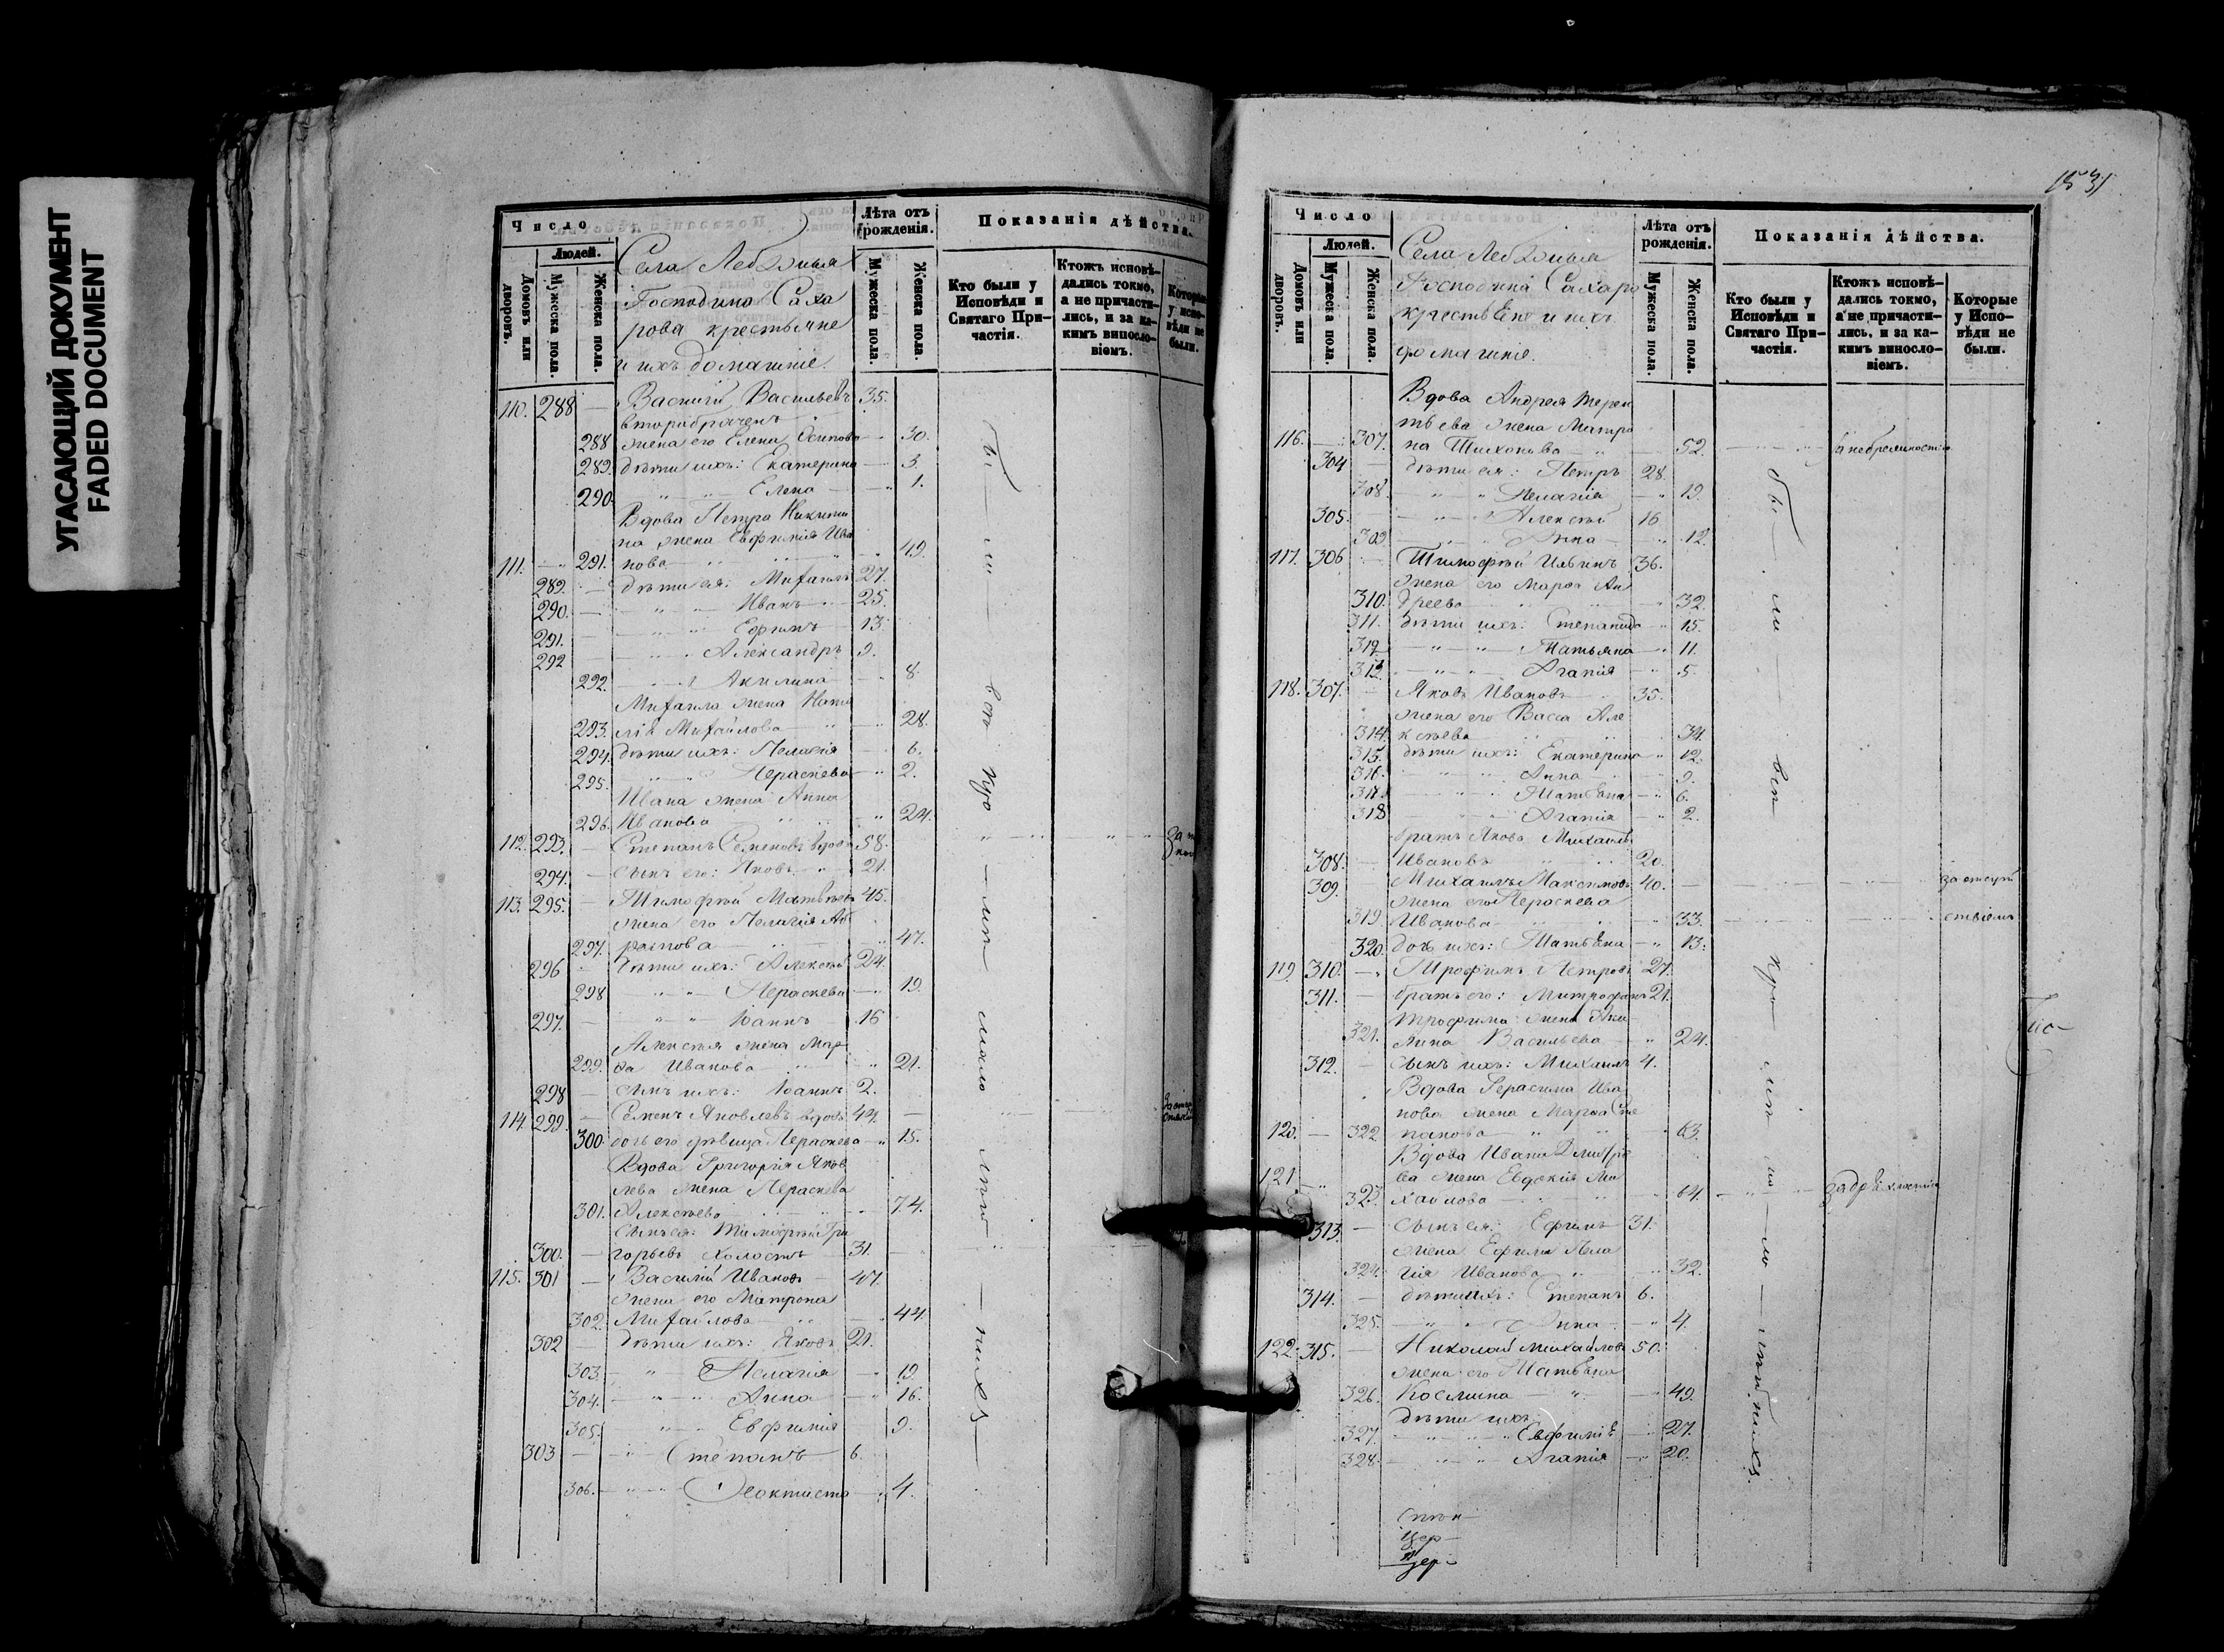 УГАСАЮЩИЙ ДОКУМЕНТ
FADED DOCUMENT
Число
Людей.
Домовъ или дворовъ.
Мужеска пола.
Женска пола.
Села
Господина Саха
рова крестьяне
и ихъ домашніе.
Лѣта отъ рожденія.
Мужеска пола.
Женска пола.
Показанія дѣйства.
Кто были у Исповѣди и Святаго Причастія.
Ктожъ исповѣдались токмо, а не причастились, и за какимъ винословіемъ.
Которые у исповѣди не были.
110. 288 — Василій Васильевъ 35.
вторабраченъ
288 жена его Елена Осипова — 30.
289. дѣти ихъ: Екатерина — 3.
290. " — " Елена — 1.
Вдова Петра Никити
на жена Евфимія Ива
111. — 291. нова — 49.
289. — дѣти ея: Михаилъ 27.
290. — " — Иванъ — 25.
291. — " — Ефимъ — 13.
292 — " — Александръ 9.
292. — " Акилина — 8.
Михаила жена Ната
293. лія Михайлова — 28.
294. дѣти ихъ: Пелагія — 6.
295. — " — Пераскева — 2.
Ивана жена Анна
296. Иванова — 24.
112. 293. — Степанъ Семеновъ вдовъ 58.
294. — сынъ его: Яковъ " 21.
113. 295. — Тимофей Матвѣевъ 45.
жена его Пелагія
297. — 47.
296 — дѣти ихъ: Алексѣй 24.
298 " — Пераскева — 19.
297. — " — Іоаннъ — 16
Алексѣя жена Мар
299. ѳа Иванова — 21.
298 — сынъ ихъ: Іоаннъ 2.
114. 299. — Семенъ Яковлевъ вдовъ 44.
300. дочь его дѣвица Пераскева — 15.
Вдова Григорія Яков
лева жена Пераскева
301. Алексѣева — 74.
сынъ ея: Тимофей Гри
300. — горьевъ холостъ — 31.
115. 301 — Василій Ивановъ — 47.
жена его Матрона
302. Михайлова — 44.
302 — дѣти ихъ: Яковъ 21.
303. — " — Пелагія — 19.
304. — " — Анна — 16.
305. " — Евфимія 9.
303 — " — Степанъ — 6.
306. — " — Ѳеоктиста — 4.
15 31
Число
Людей.
Домовъ или дворовъ.
Мужеска пола.
Женска пола.
Села
Господина Сахаро
крестьяне и ихъ
домашніе.
Лѣта отъ рожденія.
Мужеска пола.
Женска пола.
Показанія дѣйства.
Кто были у Исповѣди и Святаго Причастія.
Ктожъ исповѣдались токмо, а не причастились, и за какимъ винословіемъ.
Которые у Исповѣди не были.
Вдова Андрея Терен
тьева жена Матро
116. — 307. на Тихонова — 52.
304 — дѣти ея: Петръ 28.
308. — " — Пелагія — 19.
305. — " — Алексѣй 16
309 — " — Анна — 12.
117. 306 — Тимофей Ильинъ 36.
жена его Марѳа Ан
310. дреева — 32.
311. дѣти ихъ: Степанида — 15.
312 — " — Татьяна — 11.
313. — " — Агапія — 5.
118. 307. — Яковъ Ивановъ — 35.
жена его Васса Але
314. ксѣева — 34.
315. дѣти ихъ: Екатерина " 12.
316. — " — Анна 9.
317 — " — Татьяна — 6.
318 — " — Агапія — 2.
братъ Якова Михаилъ
308. — Ивановъ 20.
309. — Михаилъ Максимовъ 40. —
за отсут
жена его Пераскева
319 Иванова — 33.
ствіемъ
320 дочь ихъ: Татьяна — 13.
119. 310. — Трофимъ Петровъ 27.
311. — братъ его: Митрофанъ 21.
Трофима жена Аку
321. лина Васильева — 24.
312. — сынъ ихъ: Михаилъ 4.
Вдова Герасима Ива
нова жена Марѳа Сте
120. — 322. панова — 63.
Вдова Ивана Дмитріе
121. — ва жена Евдокія Ми
323. хайлова — 64.
313. — сынъ ея: Ефимъ 31.
жена Ефима Пела
324. гія Иванова — 32.
314. — дѣти ихъ: Степанъ 6.
325. — " — Анна — 4.
122. 315. — Николай Михайловъ 50.
жена его Татьяна
326. Косьмина — 49.
дѣти ихъ:
327. — " — Евфимія 27.
328. — " — Агапія — 20.